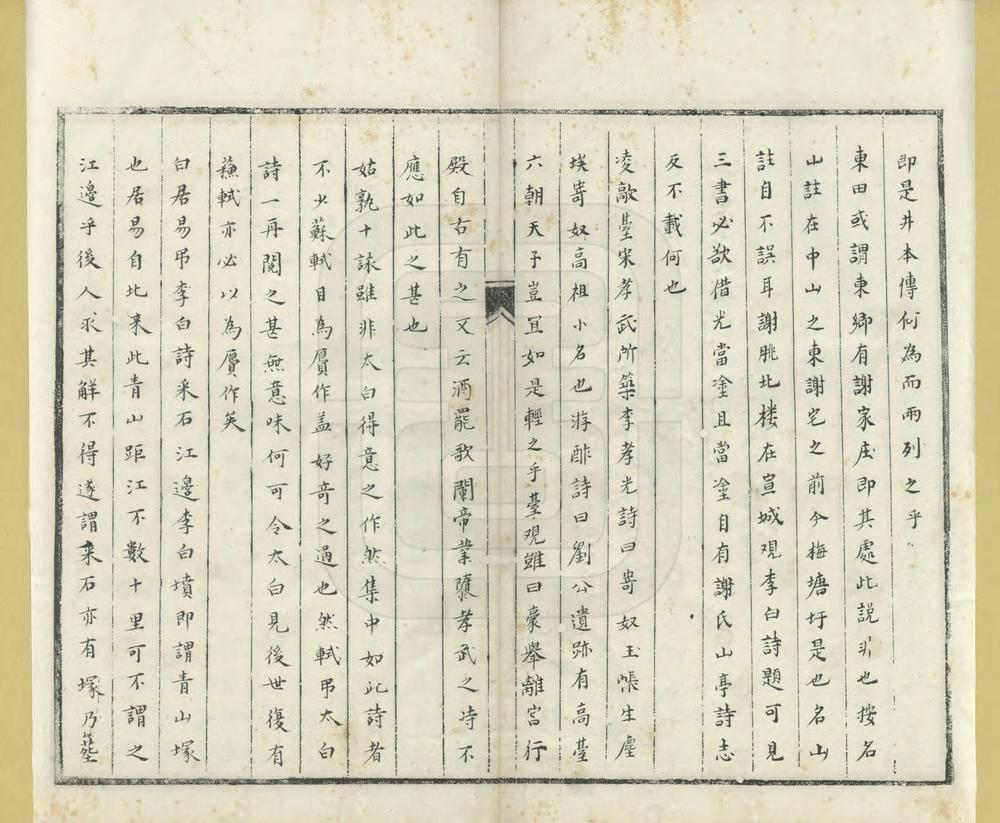 即是井本傳何為而兩列之乎
東田或謂東鄉有謝家庄即其處此説非也按名
山註在中山之東謝宅之前今梅塘圩是也名山
註自不誤耳謝脁北楼在宣城观李白詩題可見
三書必欲借光當塗且當塗自有謝氏山亭詩志
反不載何也
凌歊臺宋孝武所築李孝光詩曰寄奴玉帳生塵
埃寄奴高祖小名也游酢詩曰劉公遺跡有高臺
六朝天子豈宜如是輕之乎臺观雖曰豪舉離宮行
殿自古有之又云酒罷歌闌帝業隳孝武之時不
應如此之甚也
姑孰十詠雖非太白得意之作然集中如此詩者
不少蘇軾目為贗作盖好奇之過也然軾弔太白
詩一再閱之甚無意味何可令太白見後世復有
蘇軾亦必以為贗作矣
白居易弔李白詩采石江邊李白墳即謂青山塚
也居易自北来此青山距江不數十里可不謂之
江邊乎後人求其解不得遂謂采石亦有塚乃塟